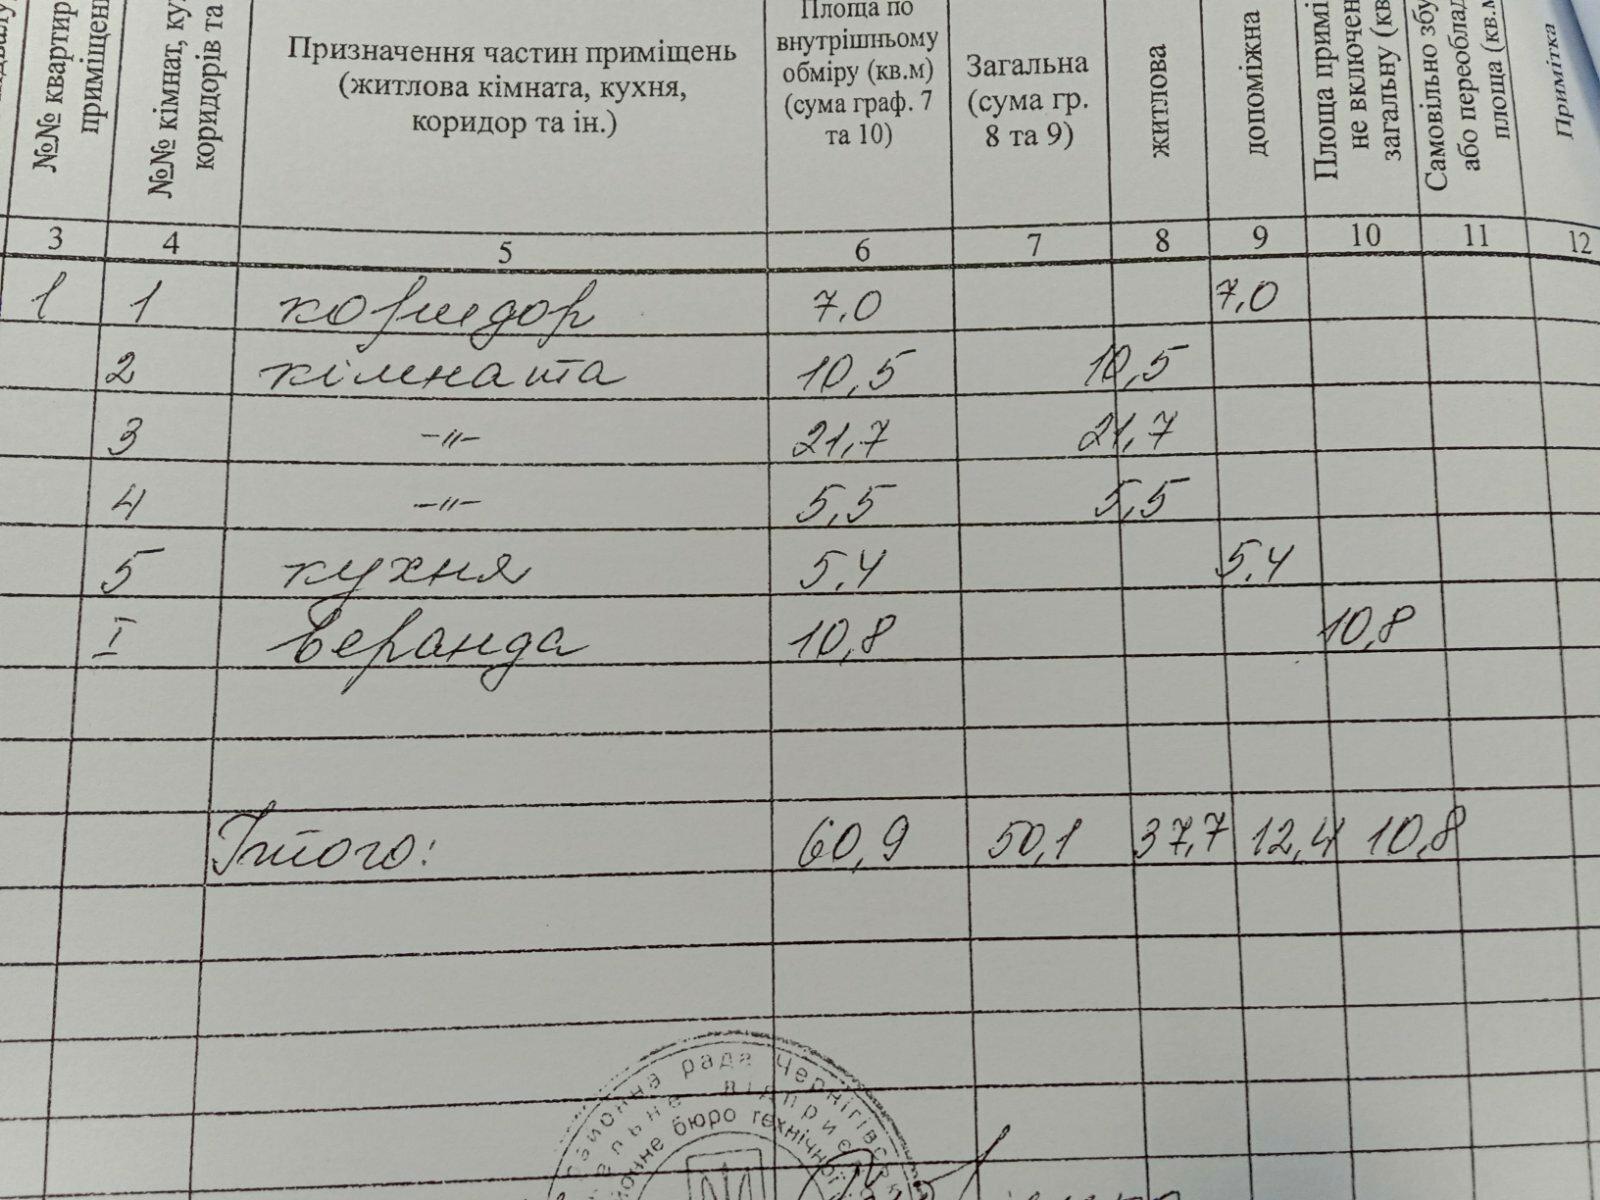 №№ квартир
приміщен
№№ кімнат, ку
коридорів та
Призначення частин приміщень
(житлова кімната, кухня,
коридор та ін.)
Площа по
внутрішньому
обміру (кв.м)
(сума граф. 7
та 10)
Загальна
(сума гр.
8 та 9)
житлова
допоміжна
Площа примі
не включен
загальну (кв
Самовільно збу
або переоблад
площа (кв.м
Примітка
3 4 5 6 7 8 9 10 11 12
1 1 коридор 7,0 7,0
2 кімната 10,5 10,5
3 -"- 21,7 21,7
4 -"- 5,5 5,5
5 кухня 5,4 5,4
I веранда 10,8 10,8
Ітого: 60,9 50,1 37,7 12,4 10,8
районна рада Чернігівс
бюро технічно